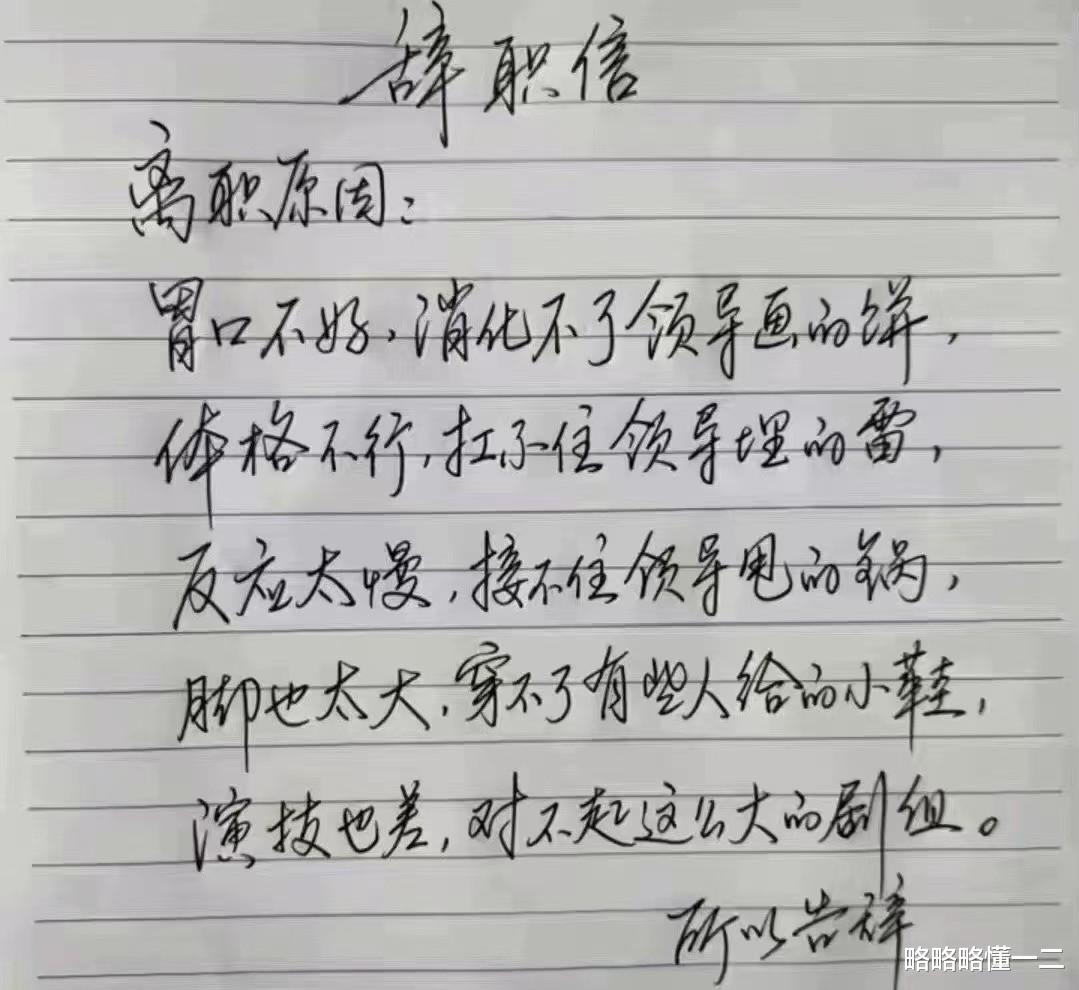 辞职信
离职原因：
胃口不好，消化不了领导画的饼，
体格不行，扛不住领导埋的雷，
反应太慢，接不住领导甩的锅，
脚也太大，穿不了有些人给的小鞋，
演技也差，对不起这么大的剧组。
所以告辞
略略略懂一二